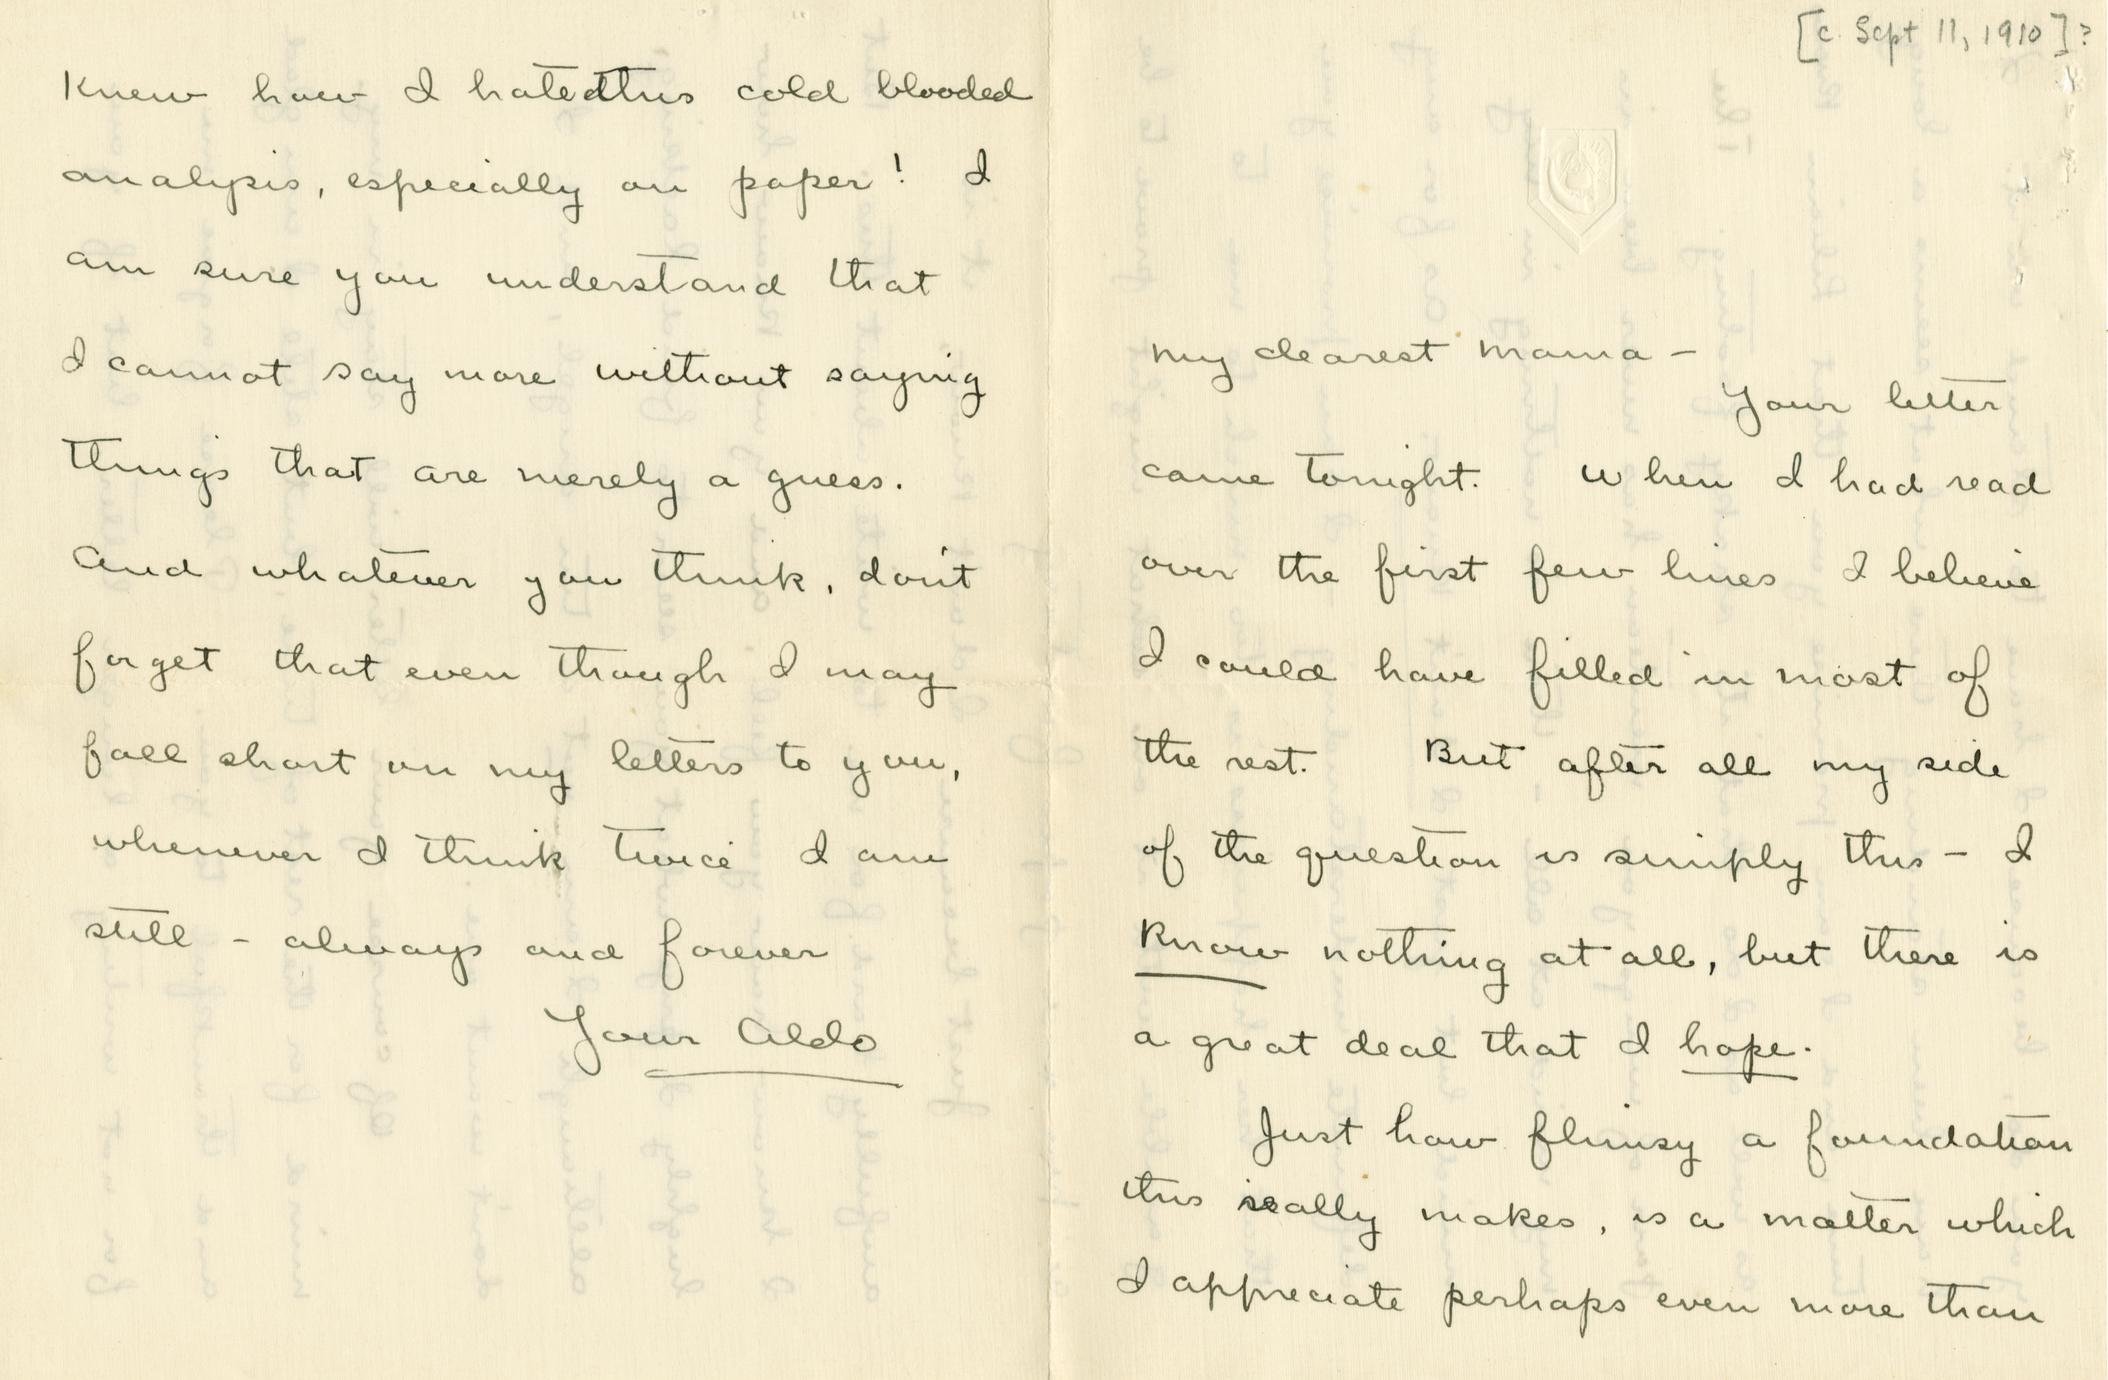 [c. Sept 11, 1910]?
My dearest Mama –
Your letter
came tonight. When I had read
over the first few lines I believe
I could have filled in most of
the rest. But after all my side
of the question is simply this – I
know nothing at all, but there is
a great deal that I hope.
Just how flimsy a foundation
this really makes, is a matter which
I appreciate perhaps even more than
knew how I hated this cold blooded
analysis, especially on paper! I
am sure you understand that
I cannot say more without saying
things that are merely a guess.
And whatever you think, don't
forget that even though I may
fall short on my letters to you,
whenever I think twice I am
still – always and forever
Your Aldo